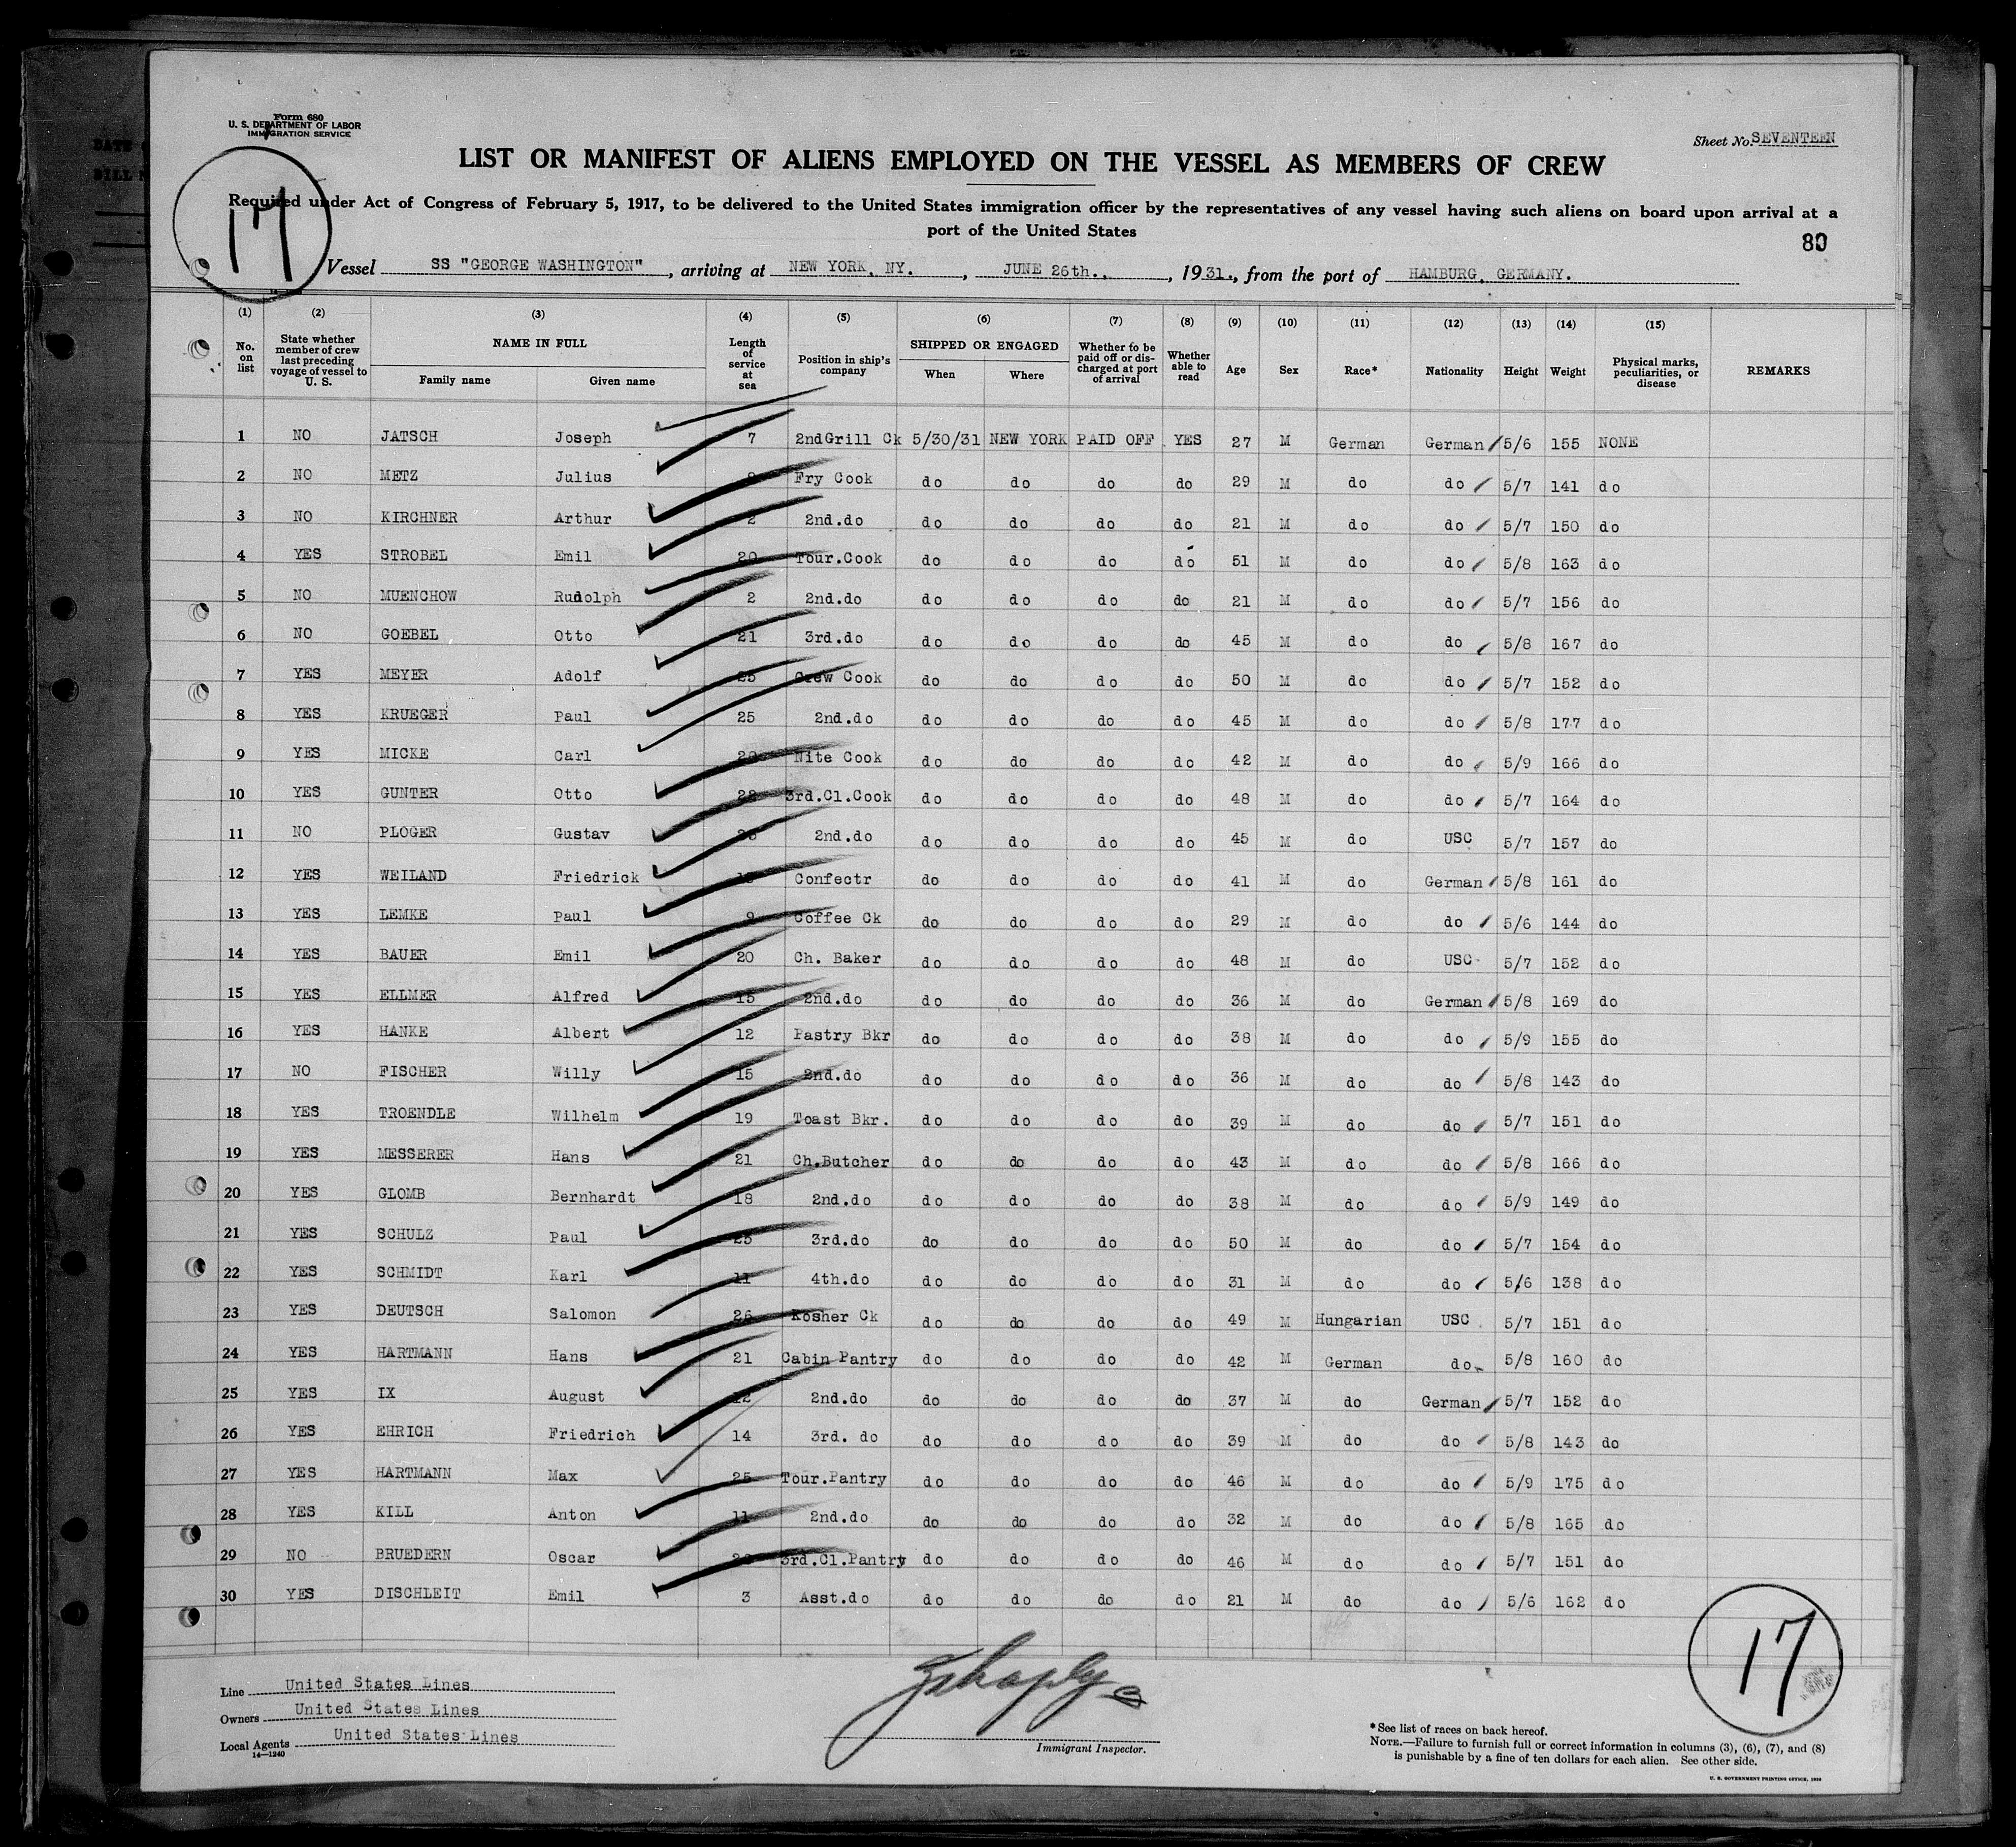 Form 680
U. S. DEPARTMENT OF LABOR
IMMIGRATION SERVICE
Sheet No. SEVENTEEN
LIST OR MANIFEST OF ALIENS EMPLOYED ON THE VESSEL AS MEMBERS OF CREW
17
Required under Act of Congress of February 5, 1917, to be delivered to the United States immigration officer by the representatives of any vessel having such aliens on board upon arrival at a
port of the United States
80
Vessel SS "GEORGE WASHINGTON", arriving at NEW YORK, NY., JUNE 26th., 1931., from the port of HAMBURG, GERMANY.
(1) (2) (3) (4) (5) (6) (7) (8) (9) (10) (11) (12) (13) (14) (15)
No. on list State whether member of crew last preceding voyage of vessel to U. S. NAME IN FULL Family name Given name Length of service at sea Position in ship's company SHIPPED OR ENGAGED When Where Whether to be paid off or discharged at port of arrival Whether able to read Age Sex Race* Nationality Height Weight Physical marks, peculiarities, or disease REMARKS
1 NO JATSCH Joseph 7 2ndGrill Ck 5/30/31 NEW YORK PAID OFF YES 27 M German German 5/6 155 NONE
2 NO METZ Julius Fry Cook do do do do 29 M do do 5/7 141 do
3 NO KIRCHNER Arthur 2 2nd.do do do do do 21 M do do 5/7 150 do
4 YES STROBEL Emil 20 Tour.Cook do do do do 51 M do do 5/8 163 do
5 NO MUENCHOW Rudolph 2 2nd.do do do do do 21 M do do 5/7 156 do
6 NO GOEBEL Otto 21 3rd.do do do do do 45 M do do 5/8 167 do
7 YES MEYER Adolf 25 Crew Cook do do do do 50 M do do 5/7 152 do
8 YES KRUEGER Paul 25 2nd.do do do do do 45 M do do 5/8 177 do
9 YES MICKE Carl Nite Cook do do do do 42 M do do 5/9 166 do
10 YES GUNTER Otto 3rd.Cl.Cook do do do do 48 M do do 5/7 164 do
11 NO PLOGER Gustav 2nd.do do do do do 45 M do USC 5/7 157 do
12 YES WEILAND Friedrick Confectr do do do do 41 M do German 5/8 161 do
13 YES LEMKE Paul 9 Coffee Ck do do do do 29 M do do 5/6 144 do
14 YES BAUER Emil 20 Ch. Baker do do do do 48 M do USC 5/7 152 do
15 YES ELLMER Alfred 15 2nd.do do do do do 36 M do German 5/8 169 do
16 YES HANKE Albert 12 Pastry Bkr do do do do 38 M do do 5/9 155 do
17 NO FISCHER Willy 15 2nd.do do do do do 36 M do do 5/8 143 do
18 YES TROENDLE Wilhelm 19 Toast Bkr. do do do do 39 M do do 5/7 151 do
19 YES MESSERER Hans 21 Ch.Butcher do do do do 43 M do do 5/8 166 do
20 YES GLOMB Bernhardt 18 2nd.do do do do do 38 M do do 5/9 149 do
21 YES SCHULZ Paul 25 3rd.do do do do do 50 M do do 5/7 154 do
22 YES SCHMIDT Karl 11 4th.do do do do do 31 M do do 5/6 138 do
23 YES DEUTSCH Salomon 26 Kosher Ck do do do do 49 M Hungarian USC 5/7 151 do
24 YES HARTMANN Hans 21 Cabin Pantry do do do do 42 M German do 5/8 160 do
25 YES IX August 12 2nd.do do do do do 37 M do German 5/7 152 do
26 YES EHRICH Friedrich 14 3rd. do do do do do 39 M do do 5/8 143 do
27 YES HARTMANN Max 25 Tour.Pantry do do do do 46 M do do 5/9 175 do
28 YES KILL Anton 11 2nd.do do do do do 32 M do do 5/8 165 do
29 NO BRUEDERN Oscar 3rd.Cl.Pantry do do do do 46 M do do 5/7 151 do
30 YES DISCHLEIT Emil 3 Asst.do do do do do 21 M do do 5/6 162 do
17
Line United States Lines
Owners United States Lines
Local Agents United States Lines
14—1240
Immigrant Inspector.
*See list of races on back hereof.
NOTE.—Failure to furnish full or correct information in columns (3), (6), (7), and (8)
is punishable by a fine of ten dollars for each alien. See other side.
U. S. GOVERNMENT PRINTING OFFICE, 1930